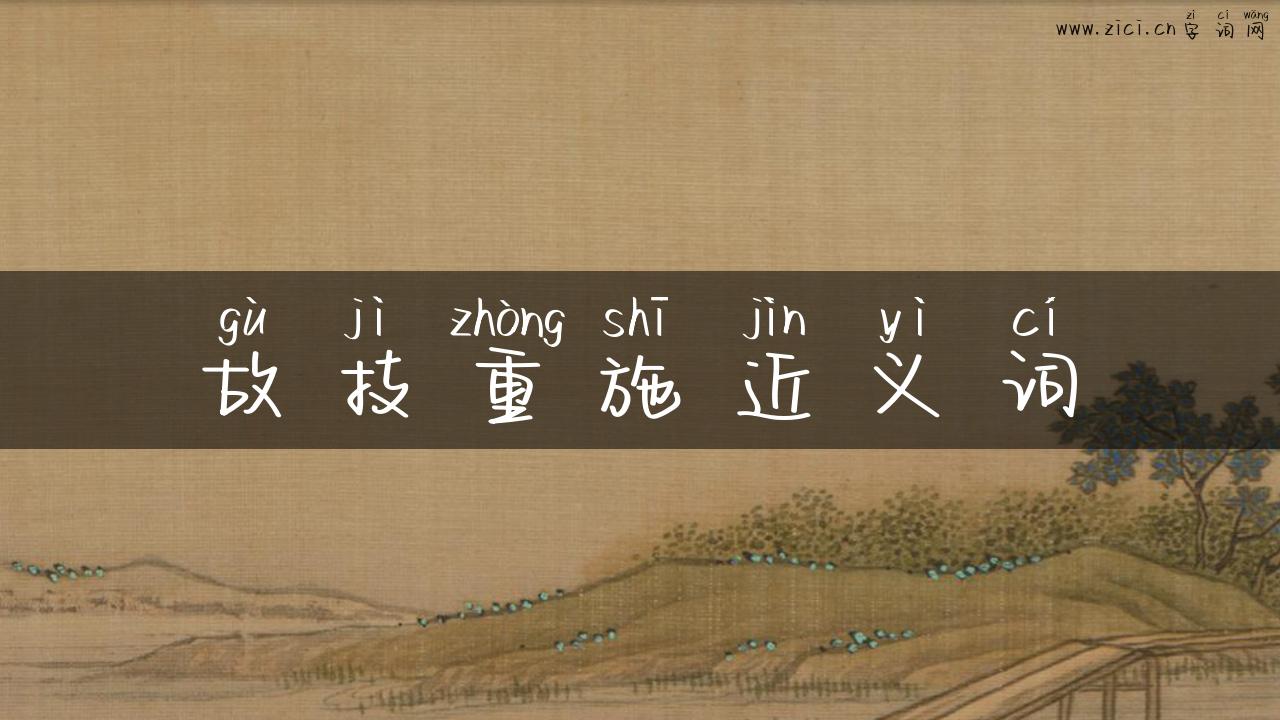 zì cí wǎng
www.zici.cn 字词网
gù jì zhòng shī jìn yì cí
故技重施近义词